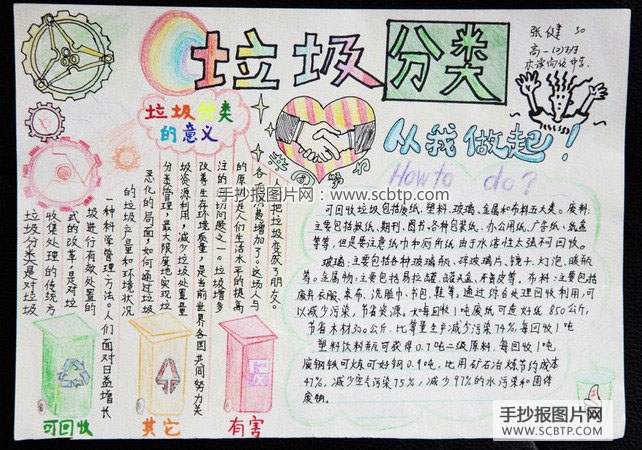 垃圾分类
张健 30
高一(2)班
从我做起!
How to do?
共同努力
垃圾分类
的意义
垃圾分类是对垃圾
收集处理的传统方
式的改革,是对垃
圾进行有效处置的
一种科学管理方法。人们面对日益增长
的垃圾产量和环境状况
恶化的局面,如何通过垃圾
分类管理,最大限度地实现垃
圾资源利用,减少垃圾处置量
改善生存环境质量,是当前世界各国共同努力关
注的迫切问题之一。垃圾增多
的原因是人们生活水平的提高
各 增加了。这场人与
把垃圾变成了朋友。
可回收垃圾包括废纸,塑料,玻璃,金属和布料五大类。废纸:
主要包括报纸,期刊,图书,各种包装纸,办公用纸,广告纸,纸盒
等等,但是要注意纸巾和厕所纸由于水溶性太强不可回收。
玻璃:主要包括各种玻璃瓶,碎玻璃片,镜子,灯泡,暖瓶
等。金属物:主要包括易拉罐,罐头盒,牙膏皮等。布料:主要包括
废弃衣服,桌布,洗脸巾,书包,鞋等。通过综合处理回收利用,可
以减少污染,节省资源。如每回收1吨废纸可造好纸850公斤,
节省木材300公斤,比等量生产减少污染74%,每回收1吨
塑料饮料瓶可获得0.7吨二级原料,每回收1吨
废钢铁可炼可好钢0.9吨,比用矿石冶炼节约成本
47%,减少空气污染75%,减少97%的水污染和固体
废物。
可回收
其它
有害
手抄报图片网:www.scbtp.com
手抄报图片网
WWW.SCBTP.COM